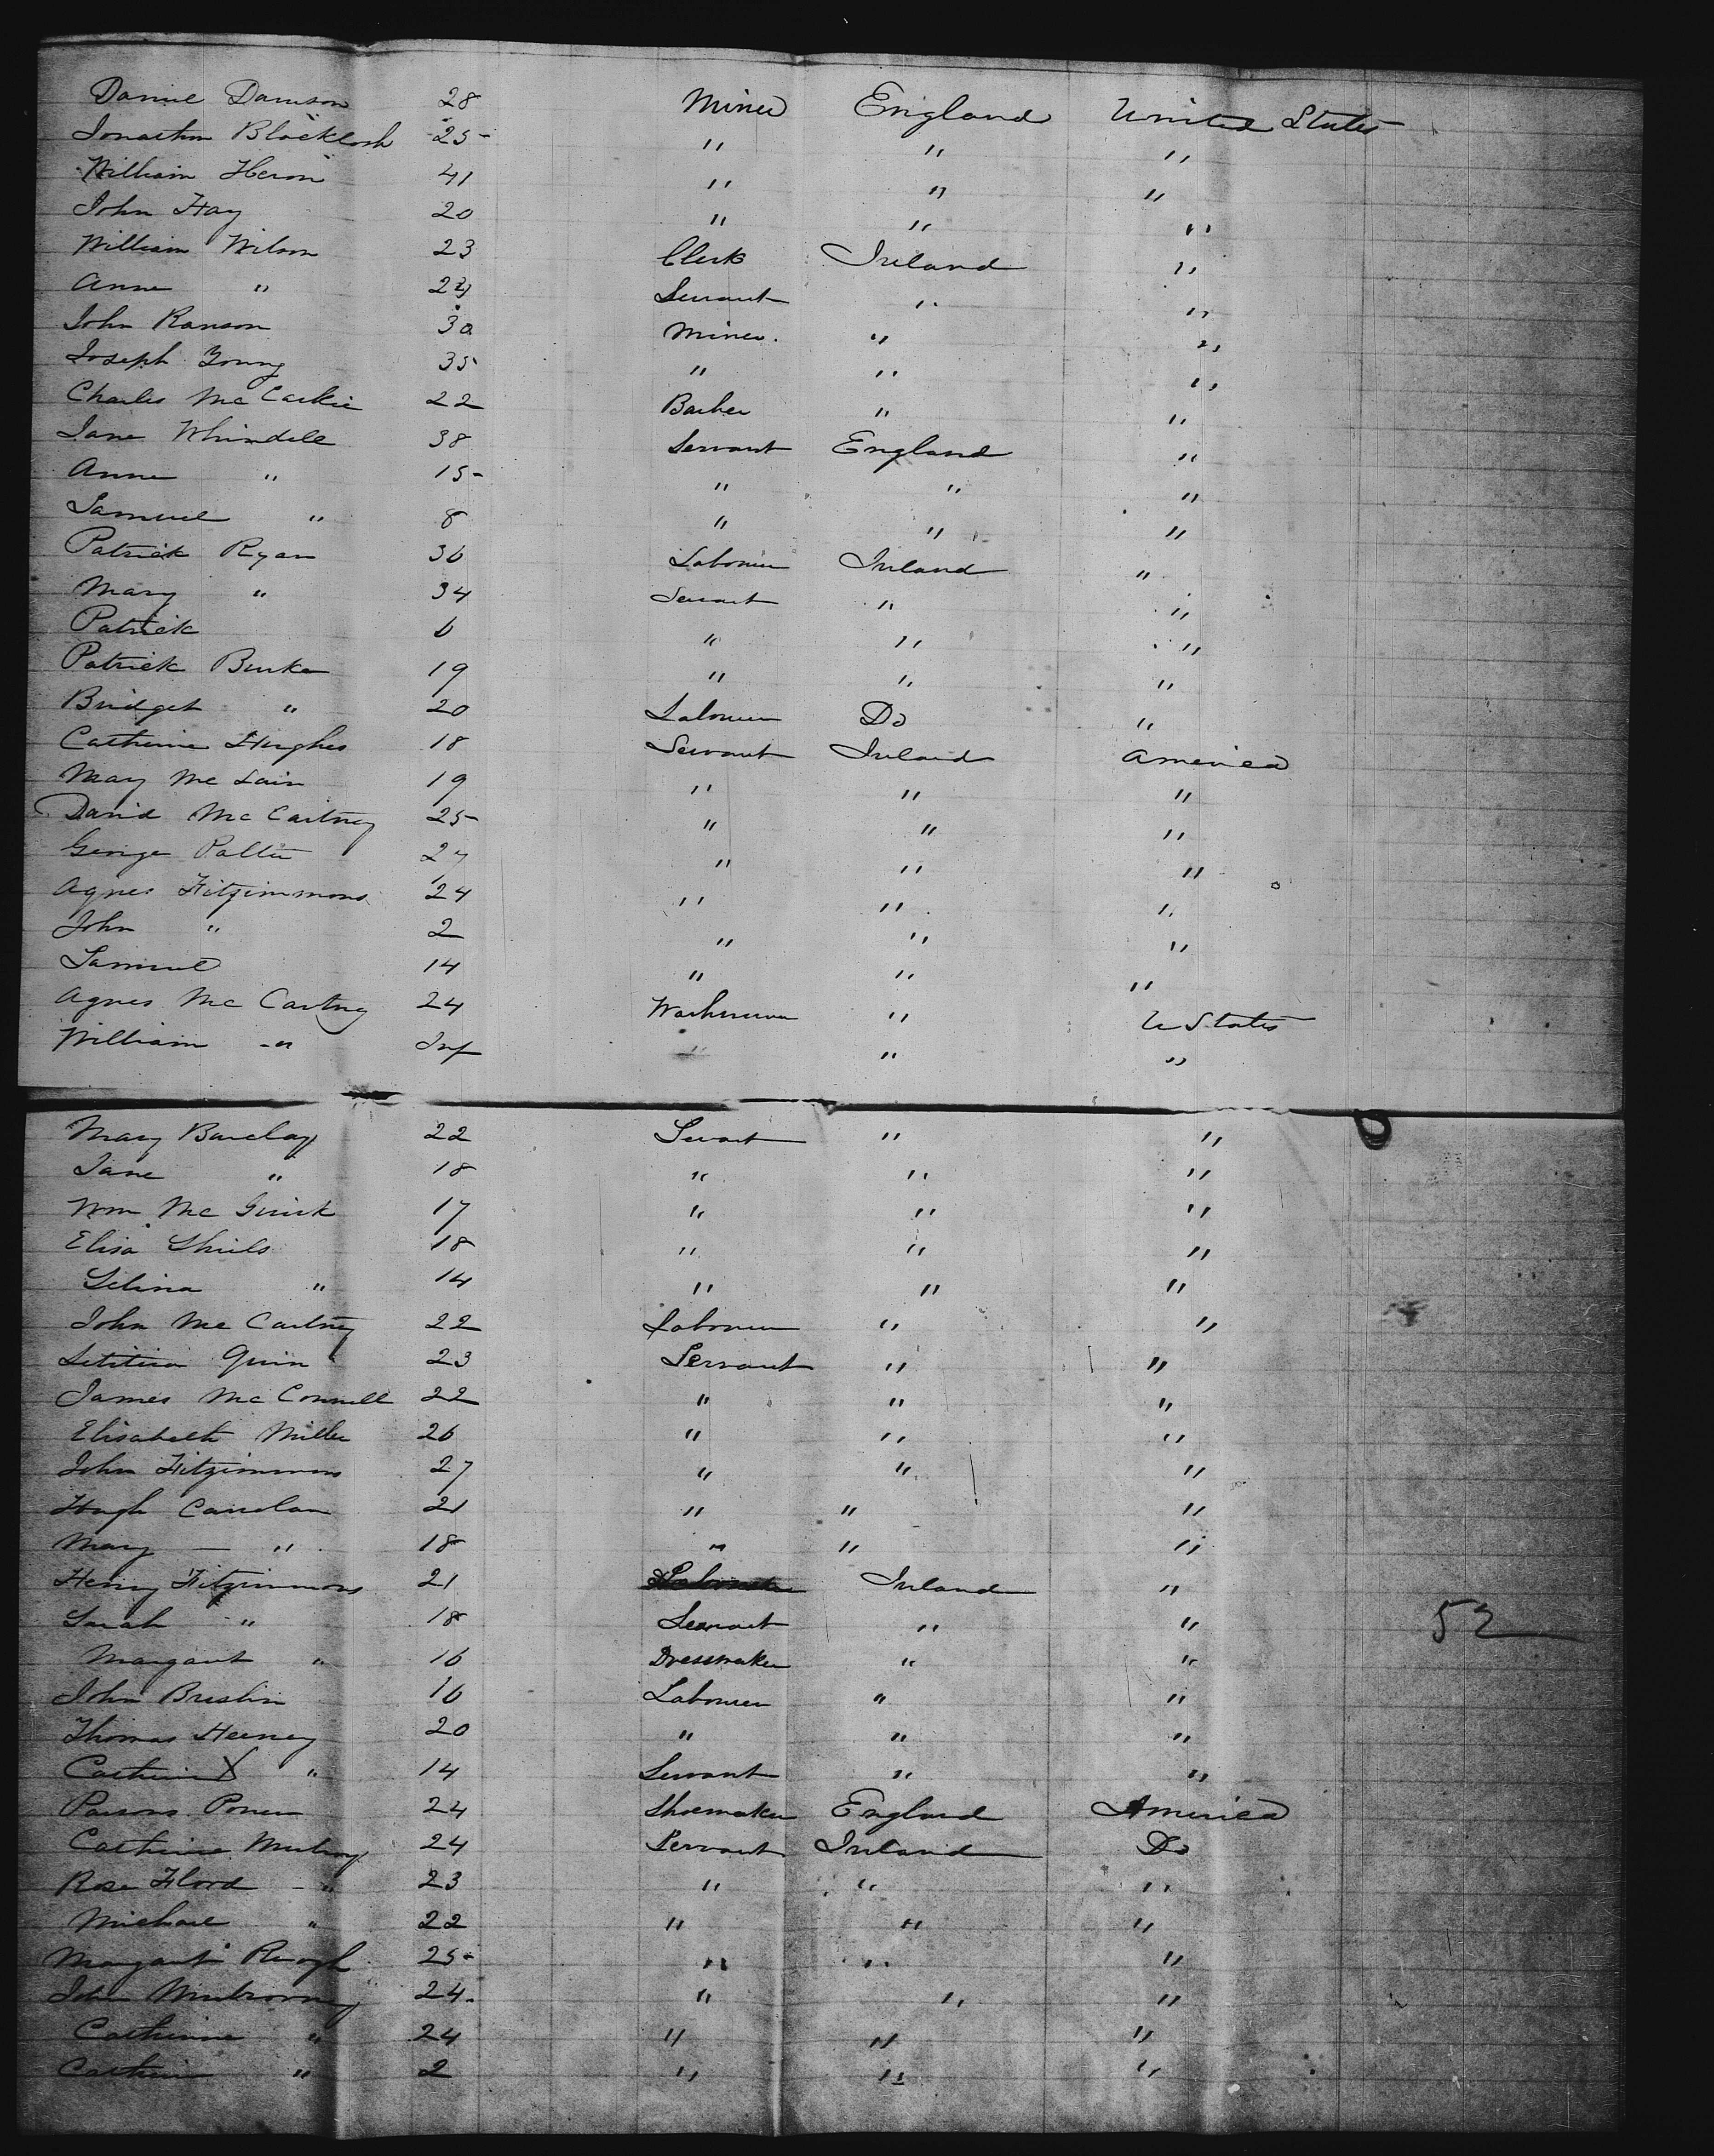 Daniel Davison 28 Miner England United States
Jonathan Blacklock 25 " " "
William Heron 41 " " "
John Hay 20 " " "
William Wilson 23 Clerk Ireland "
Anne " 24 Servant " "
John Ranson 30 Miner " "
Joseph Young 35 " " "
Charles Mc Carkie 22 Barber " "
Jane Whindell 38 Servant England "
Anne " 15 " " "
Samuel " 8 " " "
Patrick Ryan 36 Labourer Ireland "
Mary " 34 Servant " "
Patrick 6 " " "
Patrick Burke 19 " " "
Bridget " 20 Labourer Do "
Catherine Hughes 18 Servant Ireland America
Mary Mc Lain 19 " " "
David Mc Cartney 25 " " "
George 27 " " "
Agnes Fitzimmons 24 " " "
John " 2 " " "
Samuel 14 " " "
Agnes Mc Cartney 24 " U States
William " Inf " " "
Mary Barclay 22 Servant " "
Jane " 18 " " "
Wm Mc Guirk 17 " " "
Elisa Shiels 18 " " "
Selina " 14 " " "
John Mc Cartney 22 Labourer " "
Letitia Quin 23 Servant " "
James Mc Connell 22 " " "
Elisabeth Miller 26 " " "
John Fitzimmons 27 " " "
Hugh Carrolan 21 " " "
Mary " 18 " " "
Henry Fitzimmons 21 Ireland "
Sarah " 18 Servant " "
Margaret " 16 Dressmaker " "
52
John Breslin 16 Labourer " "
Thomas Heeney 20 " " "
Catherine X " 14 Servant " "
Parsons Power 24 Shoemaker England America
Catherine 24 Servant Ireland Do
Rose Flood " 23 " " "
Michael " 22 " " "
Margaret 25 " " "
John Mulrooney 24 " " "
Catherine " 24 " " "
Catherine " 2 " " "